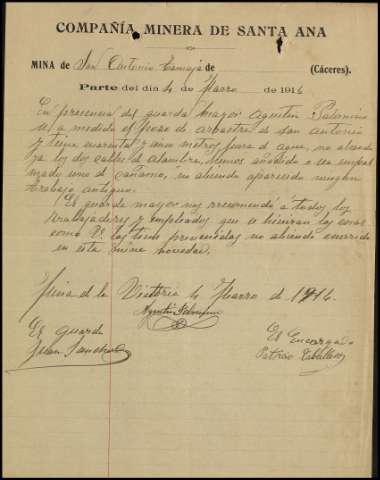 COMPAÑÍA MINERA DE SANTA ANA
MINA de San Antonio de (Cáceres).
Parte del día 4 de Marzo de 1916
En presencia del guarda mayor Agustin Palomino
se a medido el pozo de arrastre de san antonio
y tiene cuarenta y unos metros fuera de agua, no alcanza
ya los dos cables de alambre, hemos añadido a un empal
mado uno de cañamo, no abiendo aparecido ningun
trabajo antiguo.
El guarda mayor nos recomendó a todos los
trabajadores y empleados que se hicieran las cosas
como V. las tiene prevenidas, no abiendo ocurrido
en esta mina novedad.
Mina de la Victoria 4 Marzo de 1916.
Agustin Palomino
El guarda
Juan Sanchez
El Encargado
Patricio Caballero